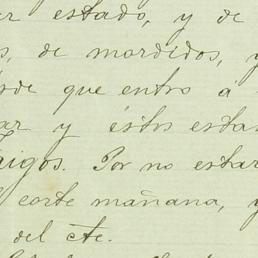 estado, y de
de mordidos, y
que entro á
ar y éstos estar
aigos. Por no estar
corte mañana, y
del cte.